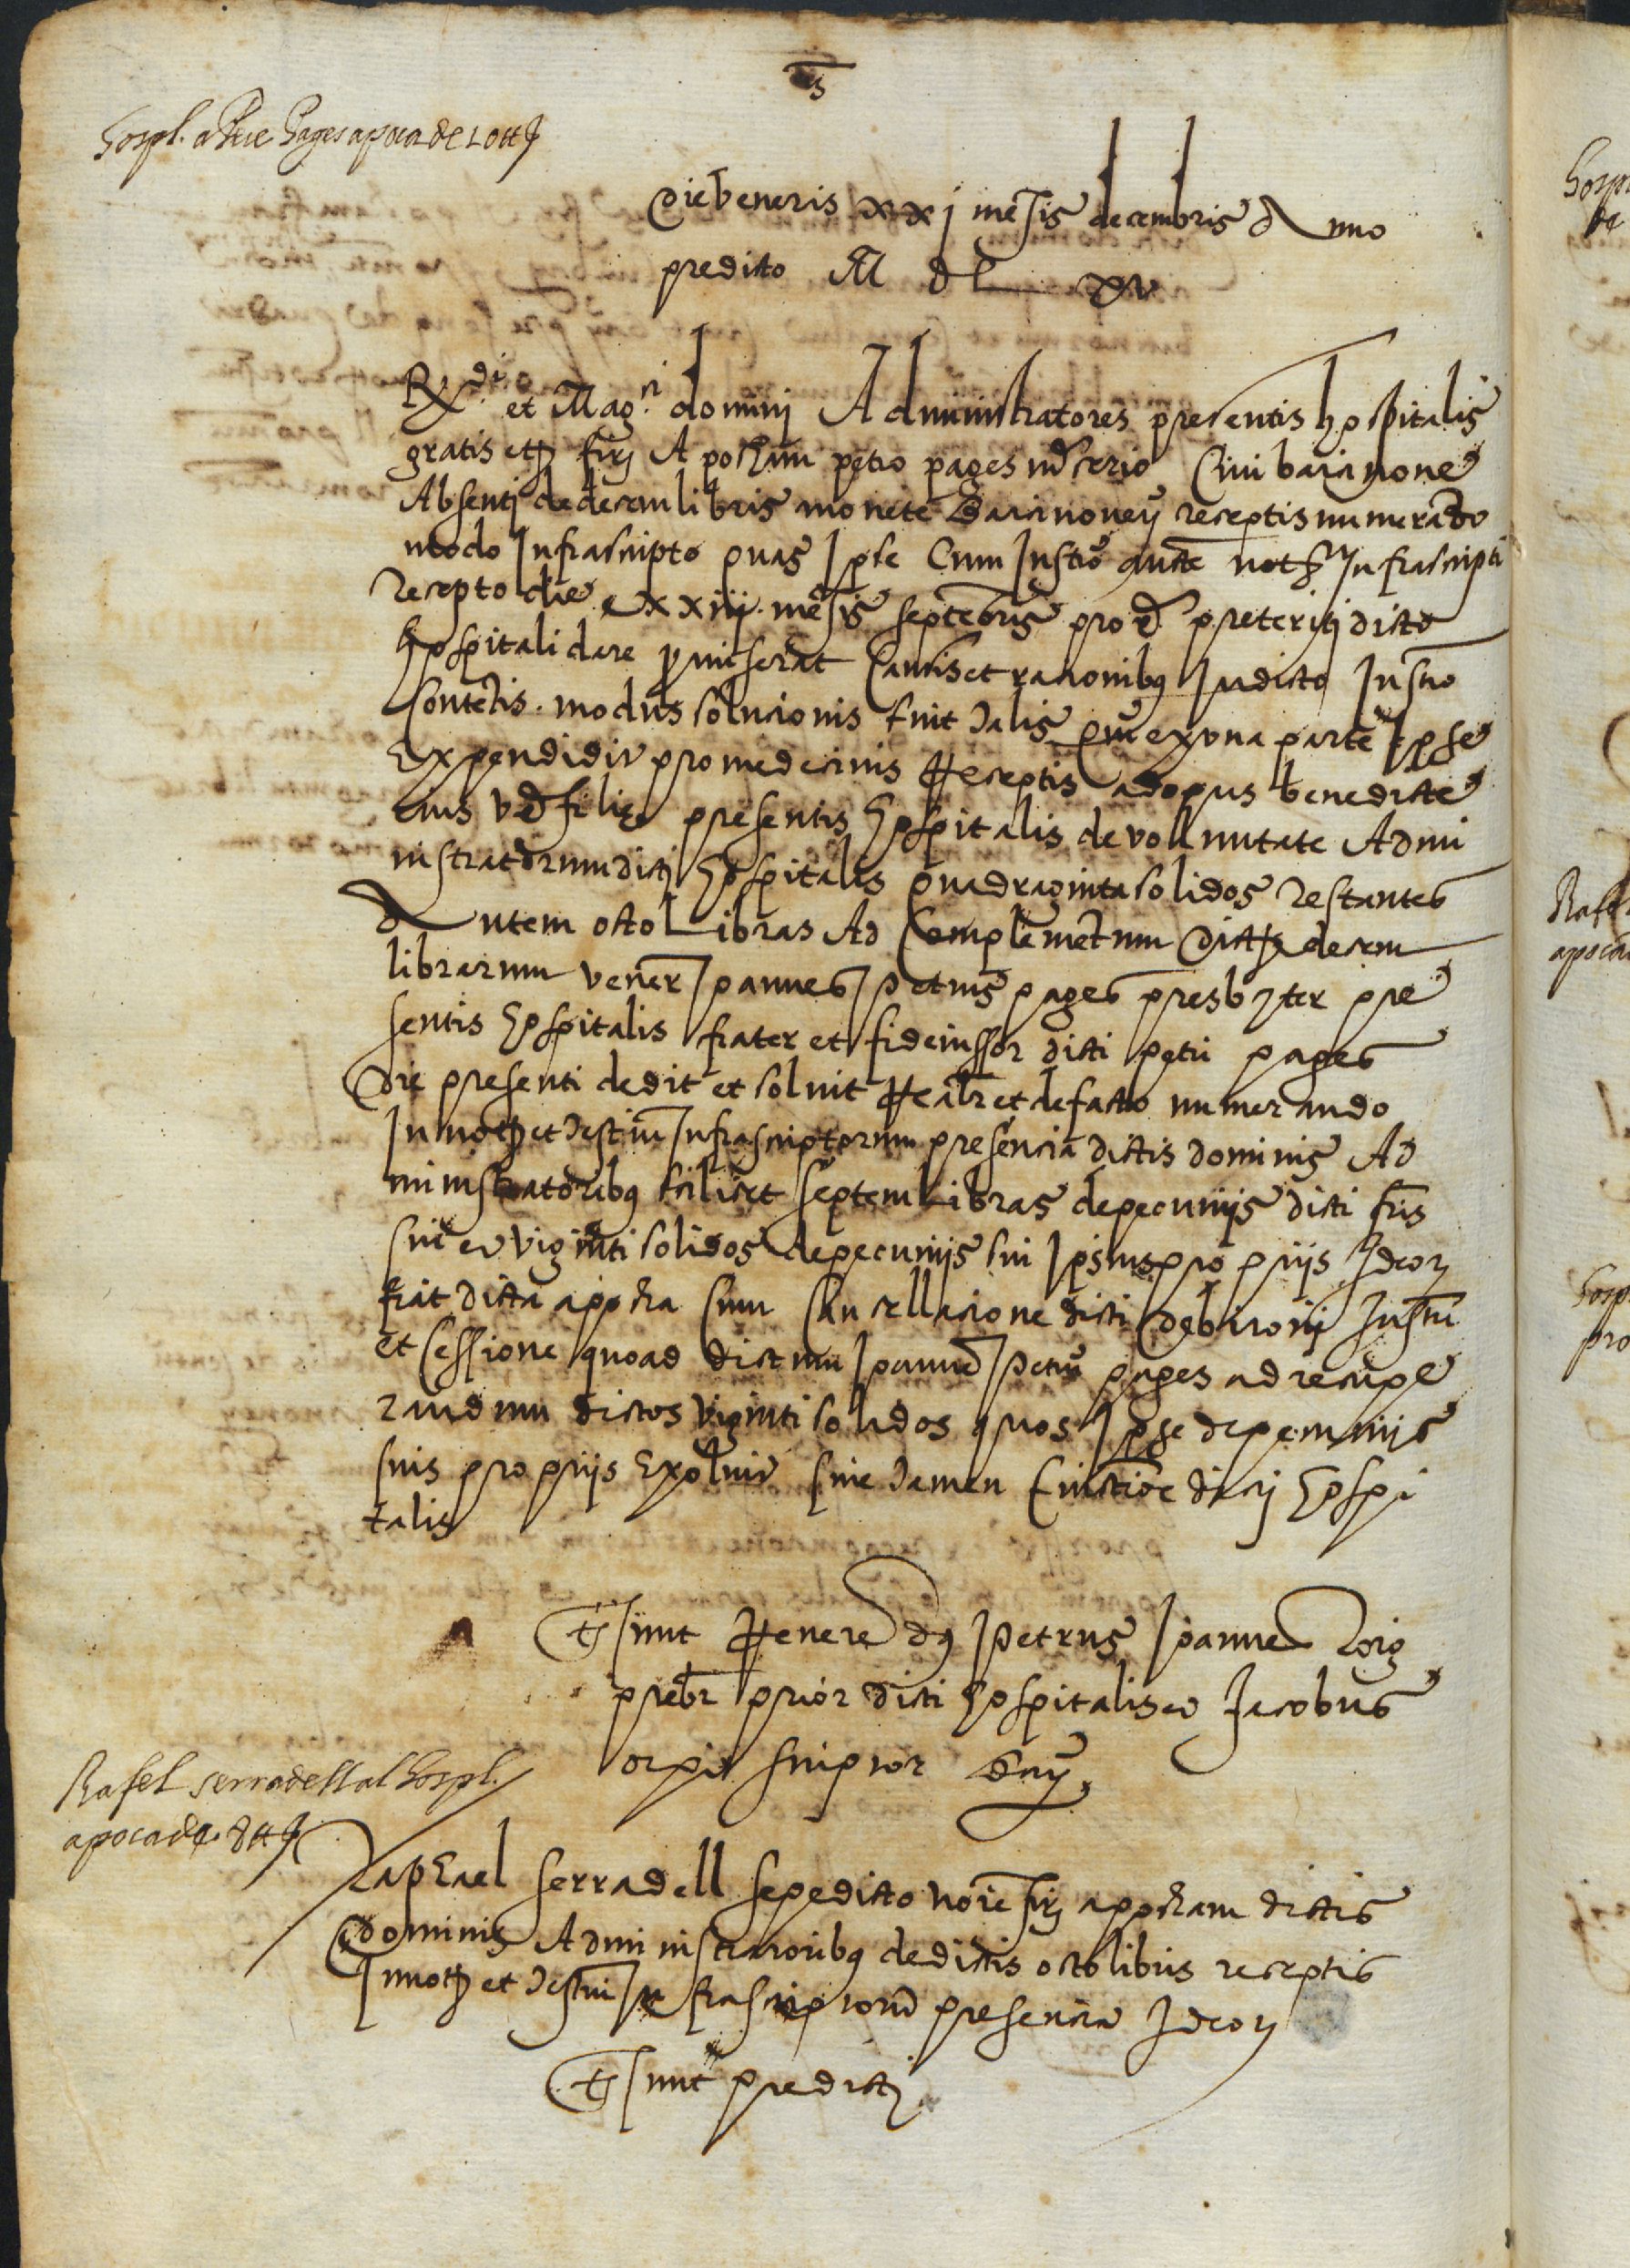 Hospl. a Pere Pages apoca de 10 ℔
Die Veneris xxj mēsis decembris Anno
predicto M D L xv
Rx.di et Mag.ci dominj Administratores presentis hospitalis
gratis etc firmarunt Apocham petro pages mercerio Civi barcinone
Absentj de decem libris monete Barcinoney receptis numerando
modo Infrascripto quas Ipse Cum Instro aucte noty Infrascripti
recepto die xxiiij mēsis septēbris prox preteritj dicto
hospitali dare promiserat Causis et racionibus In dicto Instro
Contētis. modus solucionis fuit talis Que ex una parte Ipse
Expendidit pro medecinis Receptis ad opus benedicte
eius ux filie presentis hospitalis de volluntate Admi
nistratorum dictj hospitalis Quadraginta solidos restantes
Autem octo Libras Ad Complemētum dictarum decem
librarum vener Joannes Petrus pages presbyter pre
sentis hospitalis frater et fideiussor dicti petri pages
Die presenti dedit et solvit Realr et de facto numerando
In noty et testiū Infrascriptorum presencia dictis dominis Ad
ministratoribus scilicet septem Libras de pecunijs dicti fris
sui et viginti solidos de pecunijs sui Ipsius proprijs Ideo etc
fiat dicta apocha Cum Cancellacione dicti debitorij Instri
et Cessione quoad dictum Joannē Petrū pages ad recupe
randum dictos viginti solidos quos Ipse de pecunijs
suis proprijs Exolvit sine tamen Evictione dictj hospi
talis
Ts sunt Venere dus Petrus Joannes Roig
prebr prior dicti hospitalis et Jacobus
orpi scriptor Bar
Rafel serradell al hospl.
apoca de 8 ℔
Raphael serradell sepedicto noīe fir apocham dictis
dominis Administratoribus de dictis octo libris receptis
In noty et testiū Infrascriptorū presencia Ideo etc
Ts sunt predictj